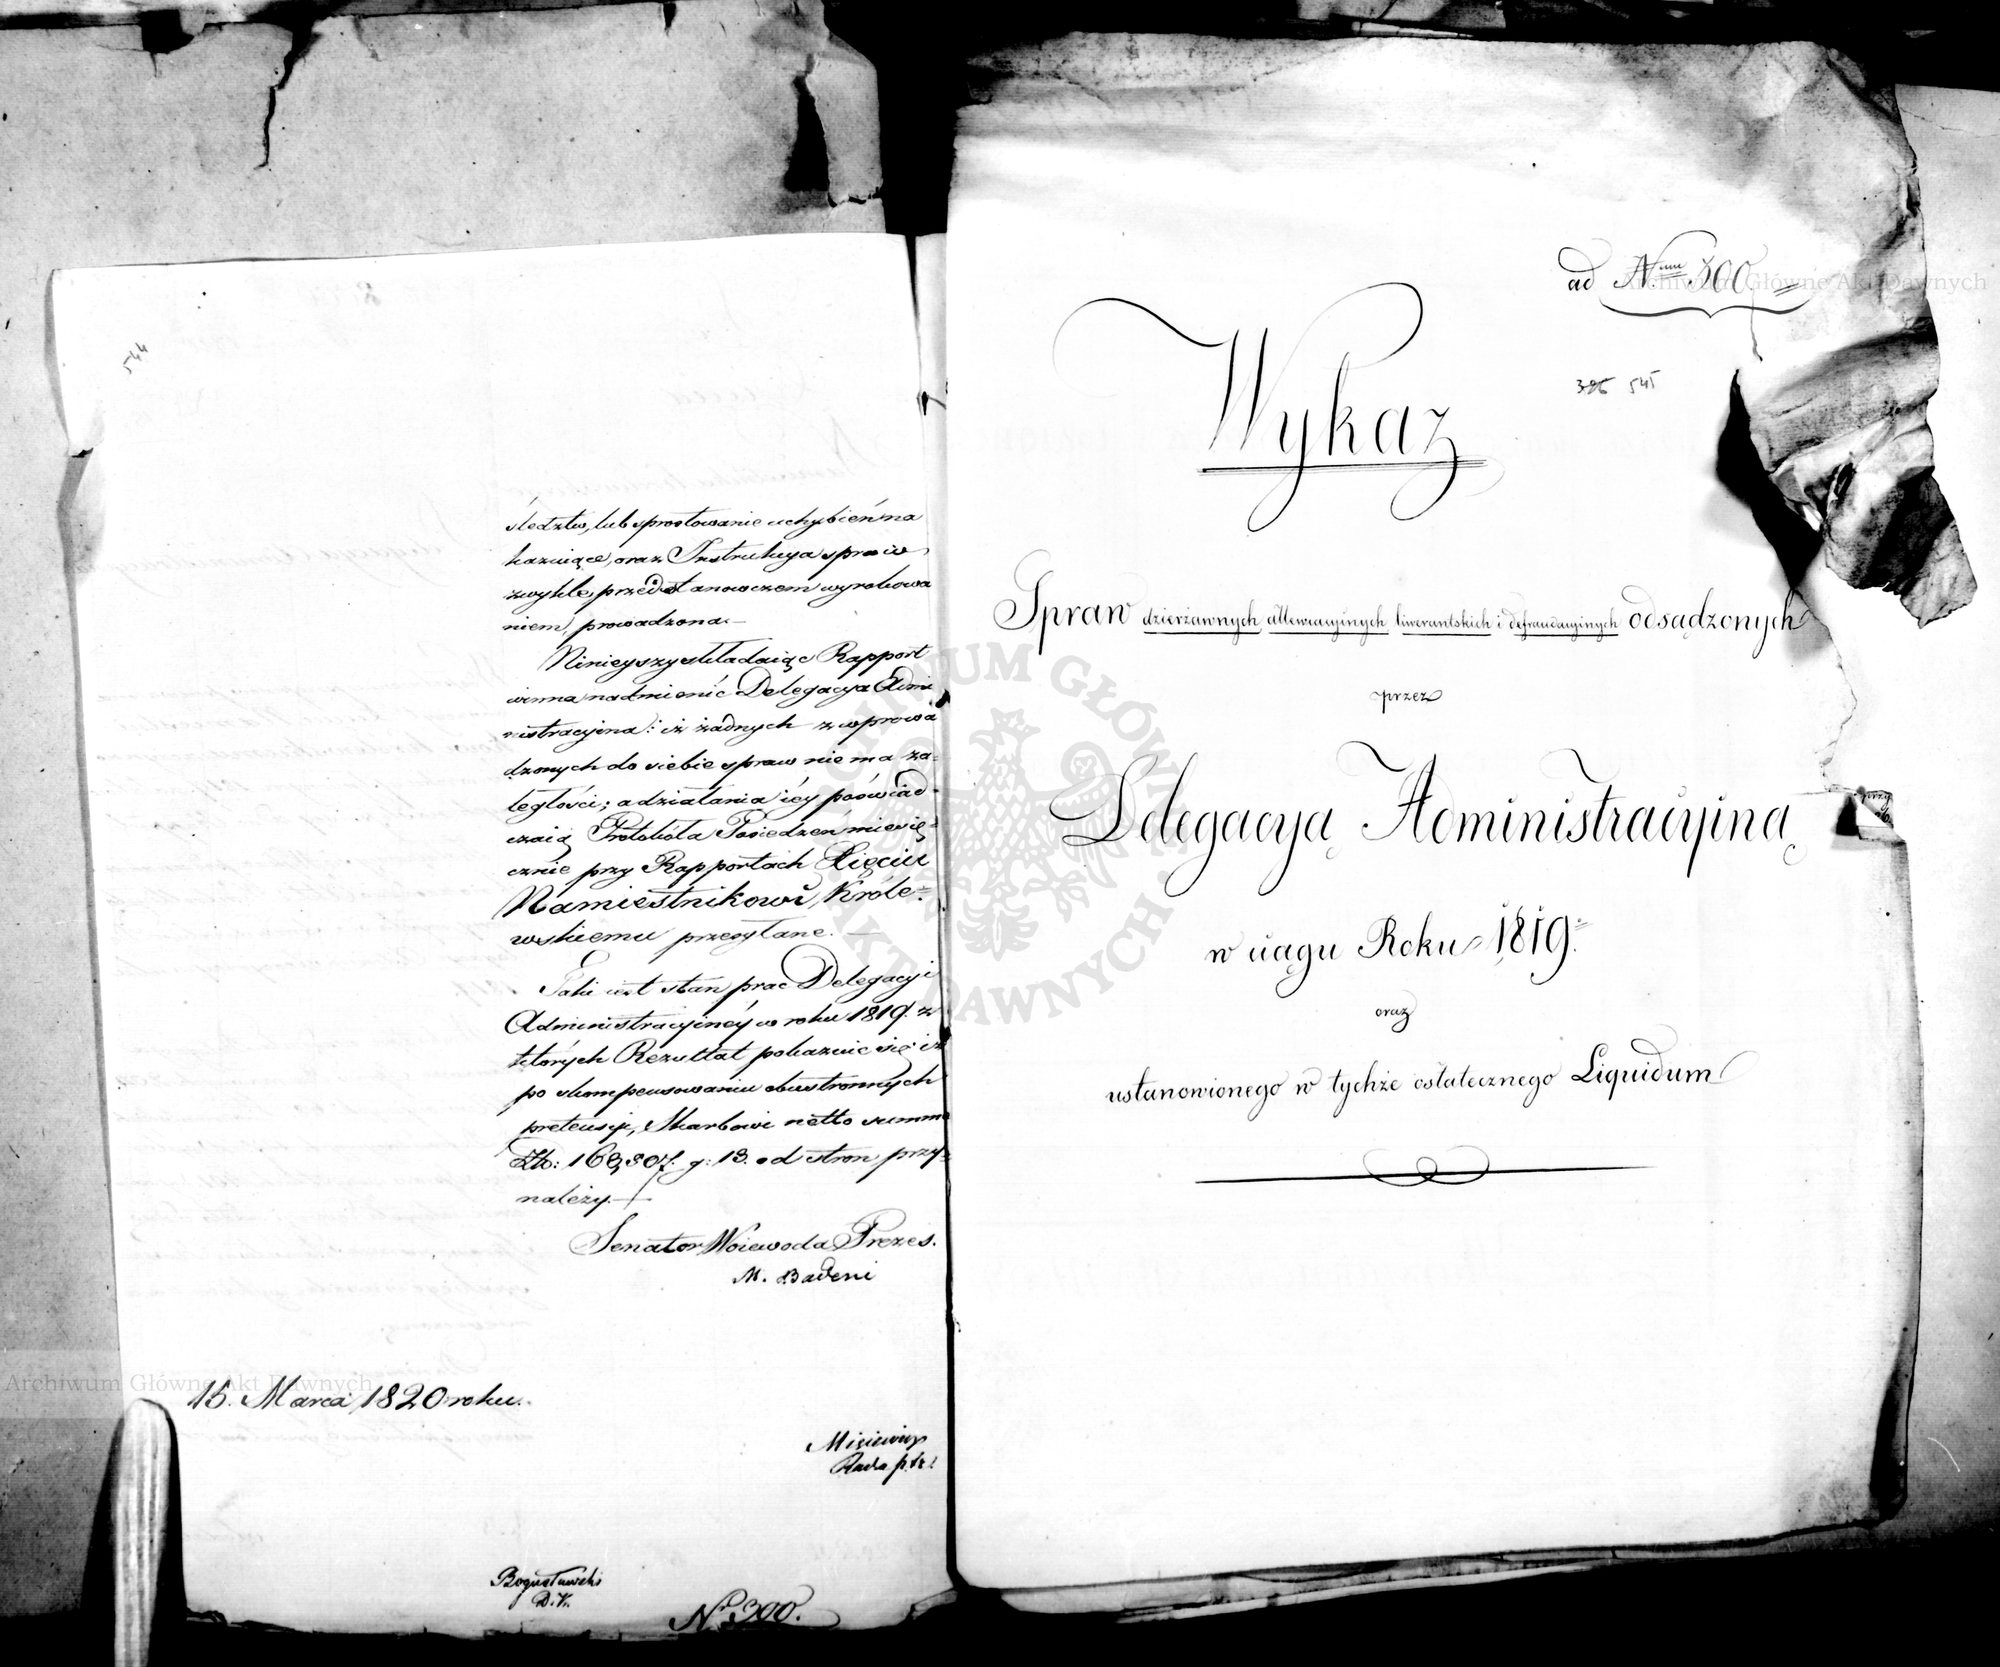 544
śledztw, lub sprostowanie uchybień na
kazuiące, oraz Instrukcya spraw
zwykle przed stanowczem wyrokowa
niem, prowadzona.—
Ninieyszy składaiąc Rapport
winna nadmienić Delegacya Admi
nistracyina: iż żadnych z wprowa
dzonych do siebie spraw nie ma za=
ległości; a działania iéy poświad=
czaią Protokóła Posiedzeń miesię=
cznie przy Rapportach Xięciu
Namiestnikowi Króle=
wskiemu przesyłane.—
Taki iest stan prac Delegacyi
Administracyinéy w roku 1819. z
których Rezultat pokazuie się: iż
po skompensowaniu obustronnych
pretensyi, Skarbowi netto summa
Zło: 168,307. g: 13. od stron przy=
należy.—
Senator Woiewoda Prezes.
M. Badeni
15. Marca 1820 roku.
Bogusławski
N° 300.
ad N.um 300
326 545
Wykaz
Spraw dzierżawnych allewiacyinych liwerantskich i defraudacyinych odsądzonych
przez
Delegacyą Administracyiną
w ciągu Roku 1819.
oraz
ustanowionego w tychże ostatecznego Liquidum
przy
Archiwum Główne Akt Dawnych
Archiwum Główne Akt Dawnych
ARCHIWUM GŁÓWNE AKT DAWNYCH